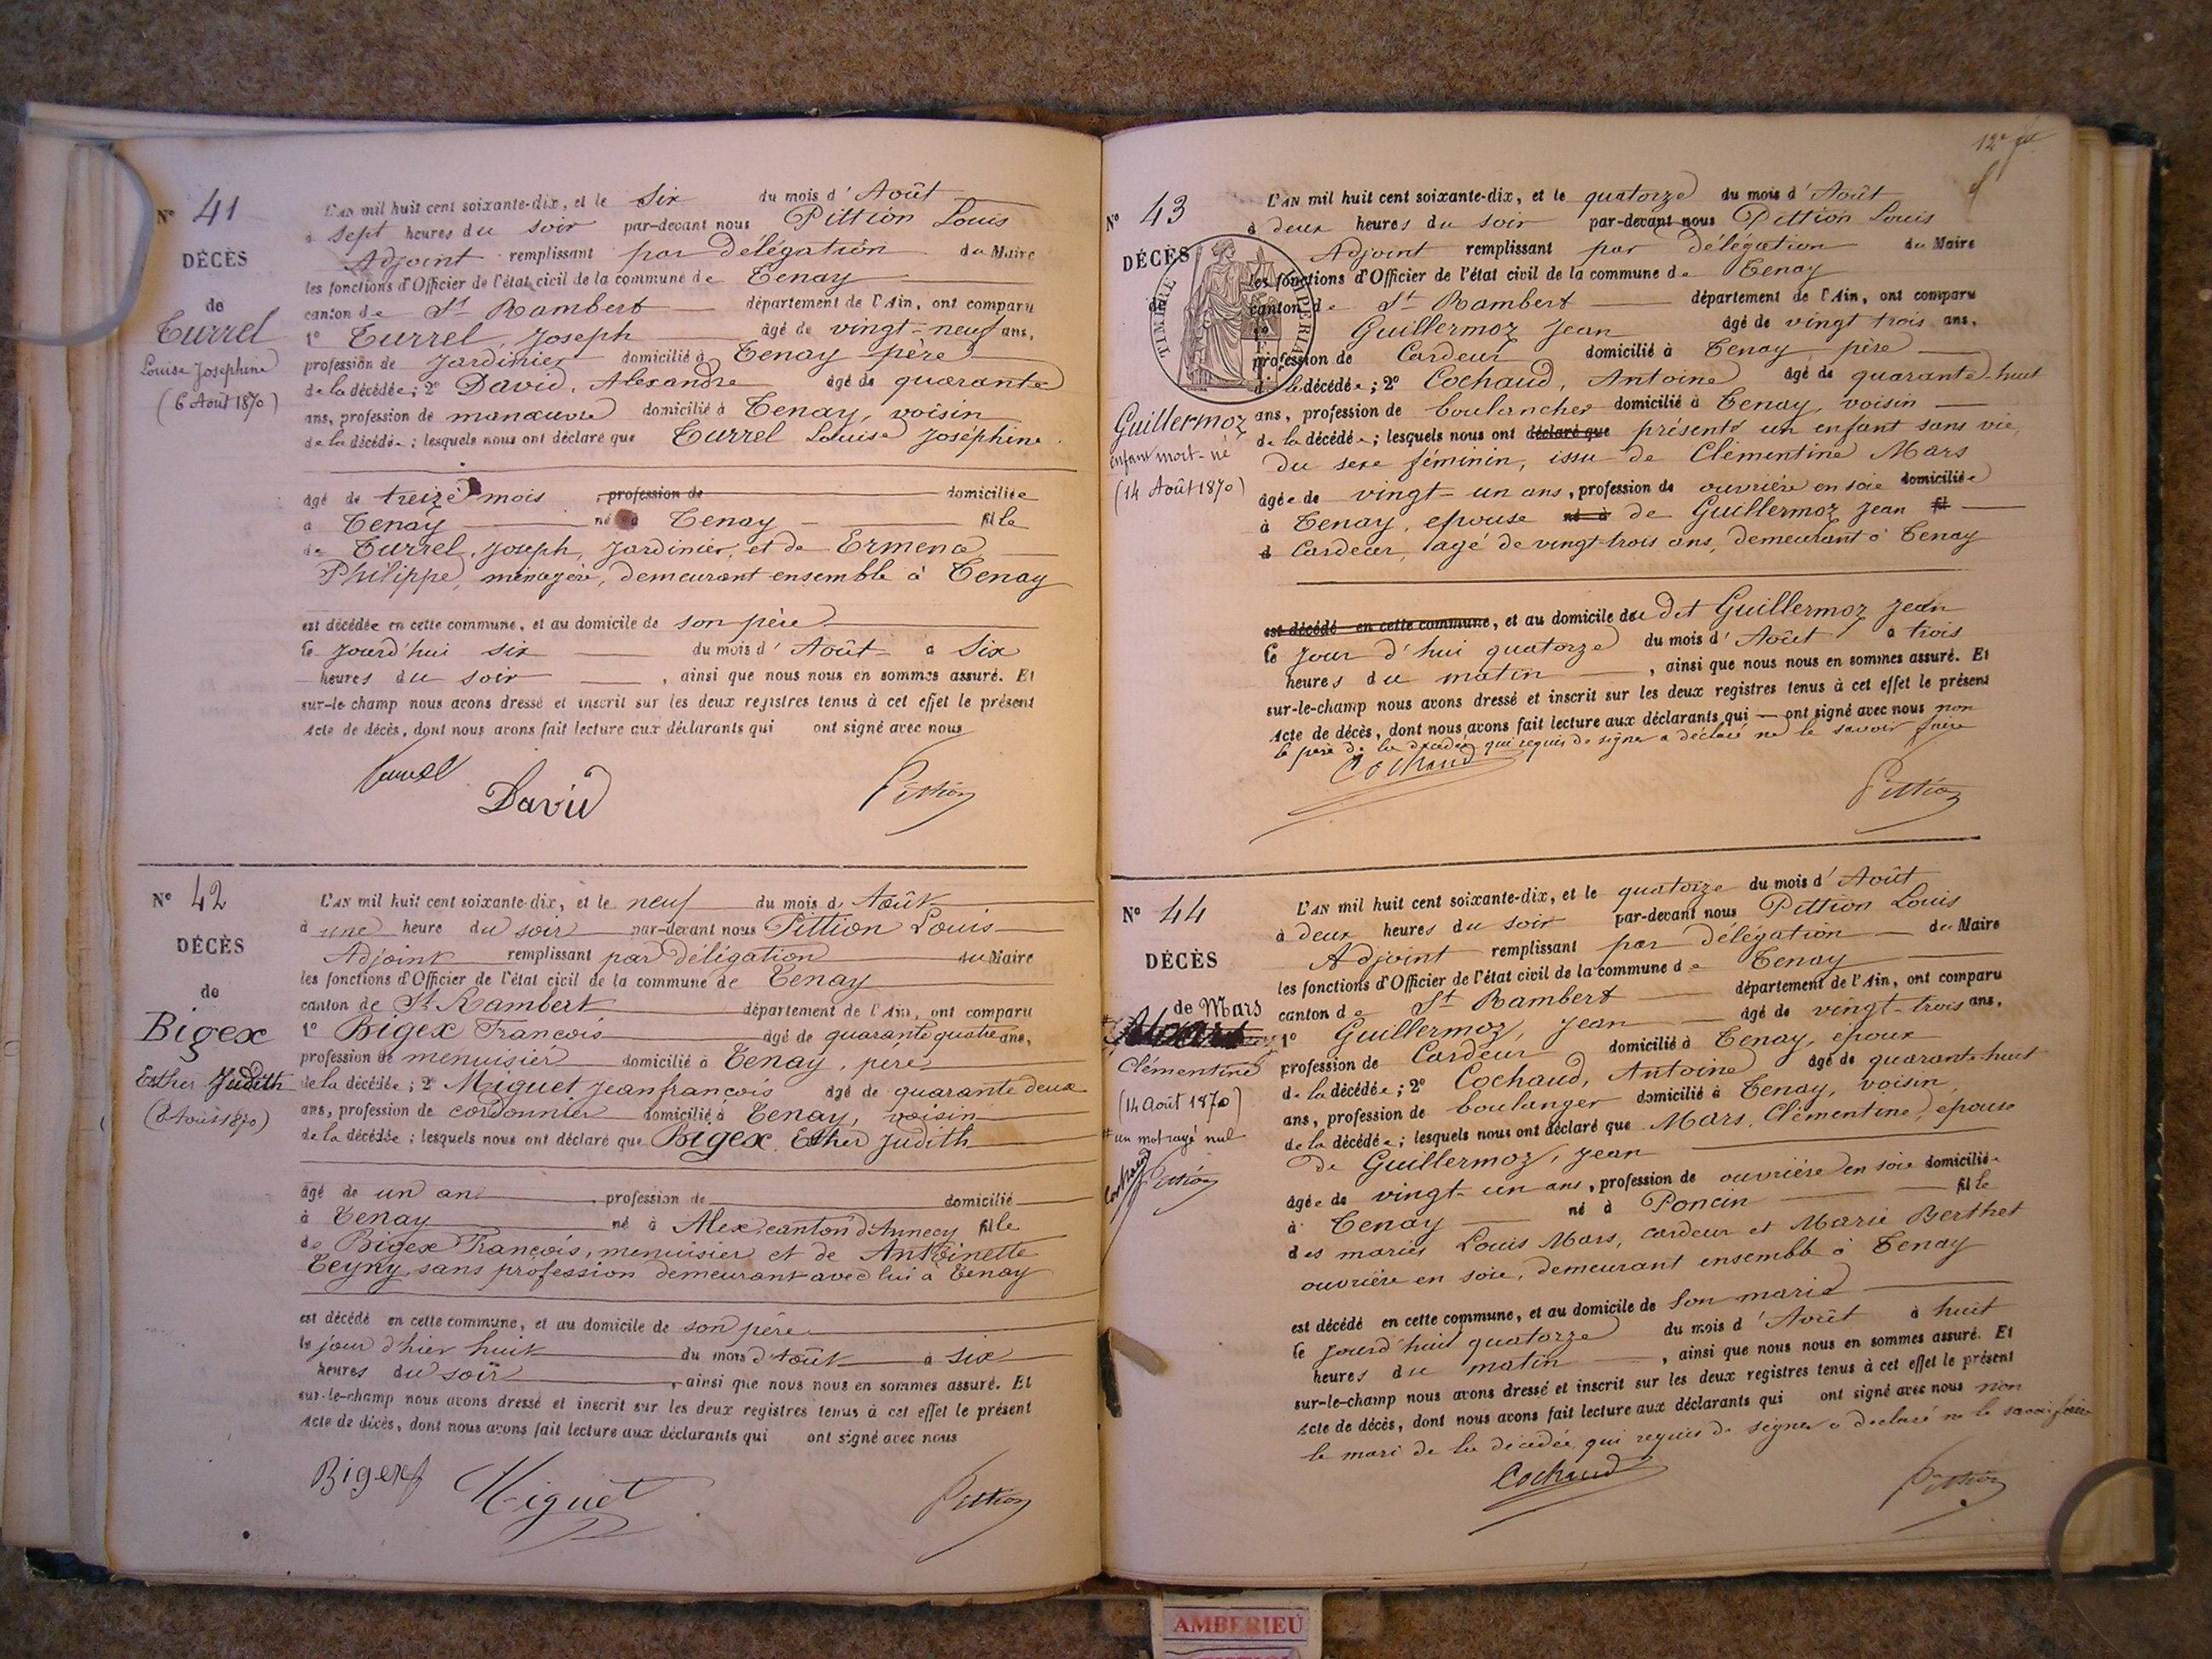 Nº 41
DÉCÈS
de
Turrel
Louise Josephine
(6 Août 1870)
L'AN mil huit cent soixante-dix, et le Six du mois d'Août
à sept heures du soir par-devant nous Pittion Louis
Adjoint remplissant par Délégation du Maire
les fonctions d'Officier de l'état civil de la commune de Tenay
canton de St Rambert département de l'Ain, ont comparu
1º Turrel, Joseph âgé de vingt-neuf ans,
profession de Jardinier domicilié à Tenay père
de la décédée; 2º David, Alexandre âgé de quarante
ans, profession de manœuvre domicilié à Tenay, voisin
de la décédée; lesquels nous ont déclaré que Turrel Louise Joséphine
âgé de treize mois, profession de domiciliée
à Tenay né à Tenay fille
de Turrel, Joseph, Jardinier, et de Ermence
Philippe, ménagère, demeurant ensemble à Tenay
est décédée en cette commune, et au domicile de son père
le jourd'hui six du mois d'Août à Six
heures du soir, ainsi que nous nous en sommes assuré. Et
sur-le-champ nous avons dressé et inscrit sur les deux registres tenus à cet effet le présent
Acte de décès, dont nous avons fait lecture aux déclarants qui ont signé avec nous
David Pittion
Nº 42
DÉCÈS
de
Bigex
Esther Judith
(8 Août 1870)
L'AN mil huit cent soixante-dix, et le neuf du mois d'Août
à une heure du soir par-devant nous Pittion Louis
Adjoint remplissant par Délégation du Maire
les fonctions d'Officier de l'état civil de la commune de Tenay
canton de St Rambert département de l'Ain, ont comparu
1º Bigex François âgé de quarante quatre ans,
profession de menuisier domicilié à Tenay, père
de la décédée; 2º Miguet Jean françois âgé de quarante deux
ans, profession de cordonnier domicilié à Tenay, voisin
de la décédée; lesquels nous ont déclaré que Bigex Esther Judith
âgé de un an, profession de domicilié
à Tenay né à Alex canton d'Annecy fille
de Bigex François, menuisier et de Antoinette
sans profession demeurant avec lui à Tenay
est décédé en cette commune, et au domicile de son père
le jour d'hier huit du mois d'Août à six
heures du soir, ainsi que nous nous en sommes assuré. Et
sur-le-champ nous avons dressé et inscrit sur les deux registres tenus à cet effet le présent
Acte de décès, dont nous avons fait lecture aux déclarants qui ont signé avec nous
Bigex Miguet Pittion
Nº 43
DÉCÈS
de
TIMBRE IMPERIAL
Guillermoz
enfant mort-né
(14 Août 1870)
L'AN mil huit cent soixante-dix, et le quatorze du mois d'Août
à deux heures du soir par-devant nous Pittion Louis
Adjoint remplissant par délégation du Maire
les fonctions d'Officier de l'état civil de la commune de Tenay
canton de St Rambert département de l'Ain, ont comparu
1º Guillermoz Jean âgé de vingt trois ans,
profession de Cardeur domicilié à Tenay, père
de la décédée; 2º Cochaud, Antoine âgé de quarante-huit
ans, profession de boulancher domicilié à Tenay, voisin
de la décédée; lesquels nous ont déclaré que présenté un enfant sans vie,
du sexe féminin, issu de Clémentine Mars
âgée de vingt-un ans, profession de ouvrière en soie domiciliée
à Tenay, epouse né à de Guillermoz Jean fil
d Cardeur, agé de vingt-trois ans, demeurant à Tenay
est décédé en cette commune, et au domicile du dit Guillermoz Jean
le jour d'hui quatorze du mois d'Août à trois
heures du matin, ainsi que nous nous en sommes assuré. Et
sur-le-champ nous avons dressé et inscrit sur les deux registres tenus à cet effet le présent
Acte de décès, dont nous avons fait lecture aux déclarants qui ont signé avec nous non
le père de la décédée qui requis de signer a déclaré ne le savoir faire
Cochaud
Pittion
Nº 44
DÉCÈS
de Mars
Clémentine
(14 Août 1870)
# un mot rayé nul
Cochaud Pittion
L'AN mil huit cent soixante-dix, et le quatorze du mois d'Août
à deux heures du soir par-devant nous Pittion Louis
Adjoint remplissant par délégation du Maire
les fonctions d'Officier de l'état civil de la commune de Tenay
canton de St Rambert département de l'Ain, ont comparu
1º Guillermoz, Jean âgé de vingt-trois ans,
profession de Cardeur domicilié à Tenay, epoux
de la décédée; 2º Cochaud, Antoine âgé de quarante huit
ans, profession de boulanger domicilié à Tenay, voisin,
de la décédée; lesquels nous ont déclaré que Mars, Clémentine, épouse
de Guillermoz, Jean
âgée de vingt-un ans, profession de ouvrière en soie domiciliée
à Tenay né à Poncin fille
des mariés Louis Mars, cardeur et Marie Berthet
ouvrière en soie, demeurant ensemble à Tenay
est décédé en cette commune, et au domicile de Son marié
le jourd'hui quatorze du mois d'Août à huit
heures du matin, ainsi que nous nous en sommes assuré. Et
sur-le-champ nous avons dressé et inscrit sur les deux registres tenus à cet effet le présent
Acte de décès, dont nous avons fait lecture aux déclarants qui ont signé avec nous non
le mari de la décédée qui requis de signer a déclaré ne le savoir faire
Cochaud
Pittion
AMBERIEU